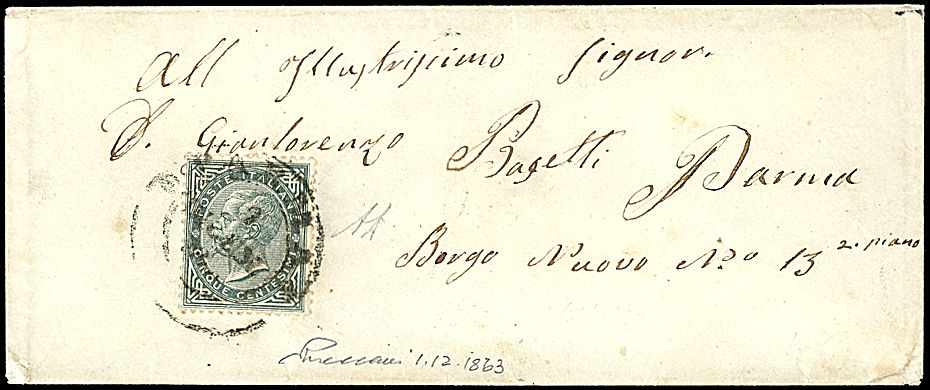 All Illustrissimo Signor.
D. Gianlorenzo Basetti Parma
Borgo Nuovo No. 13 2. piano
POSTE ITALIANE
CINQUE CENTESIMI
1.12.1863